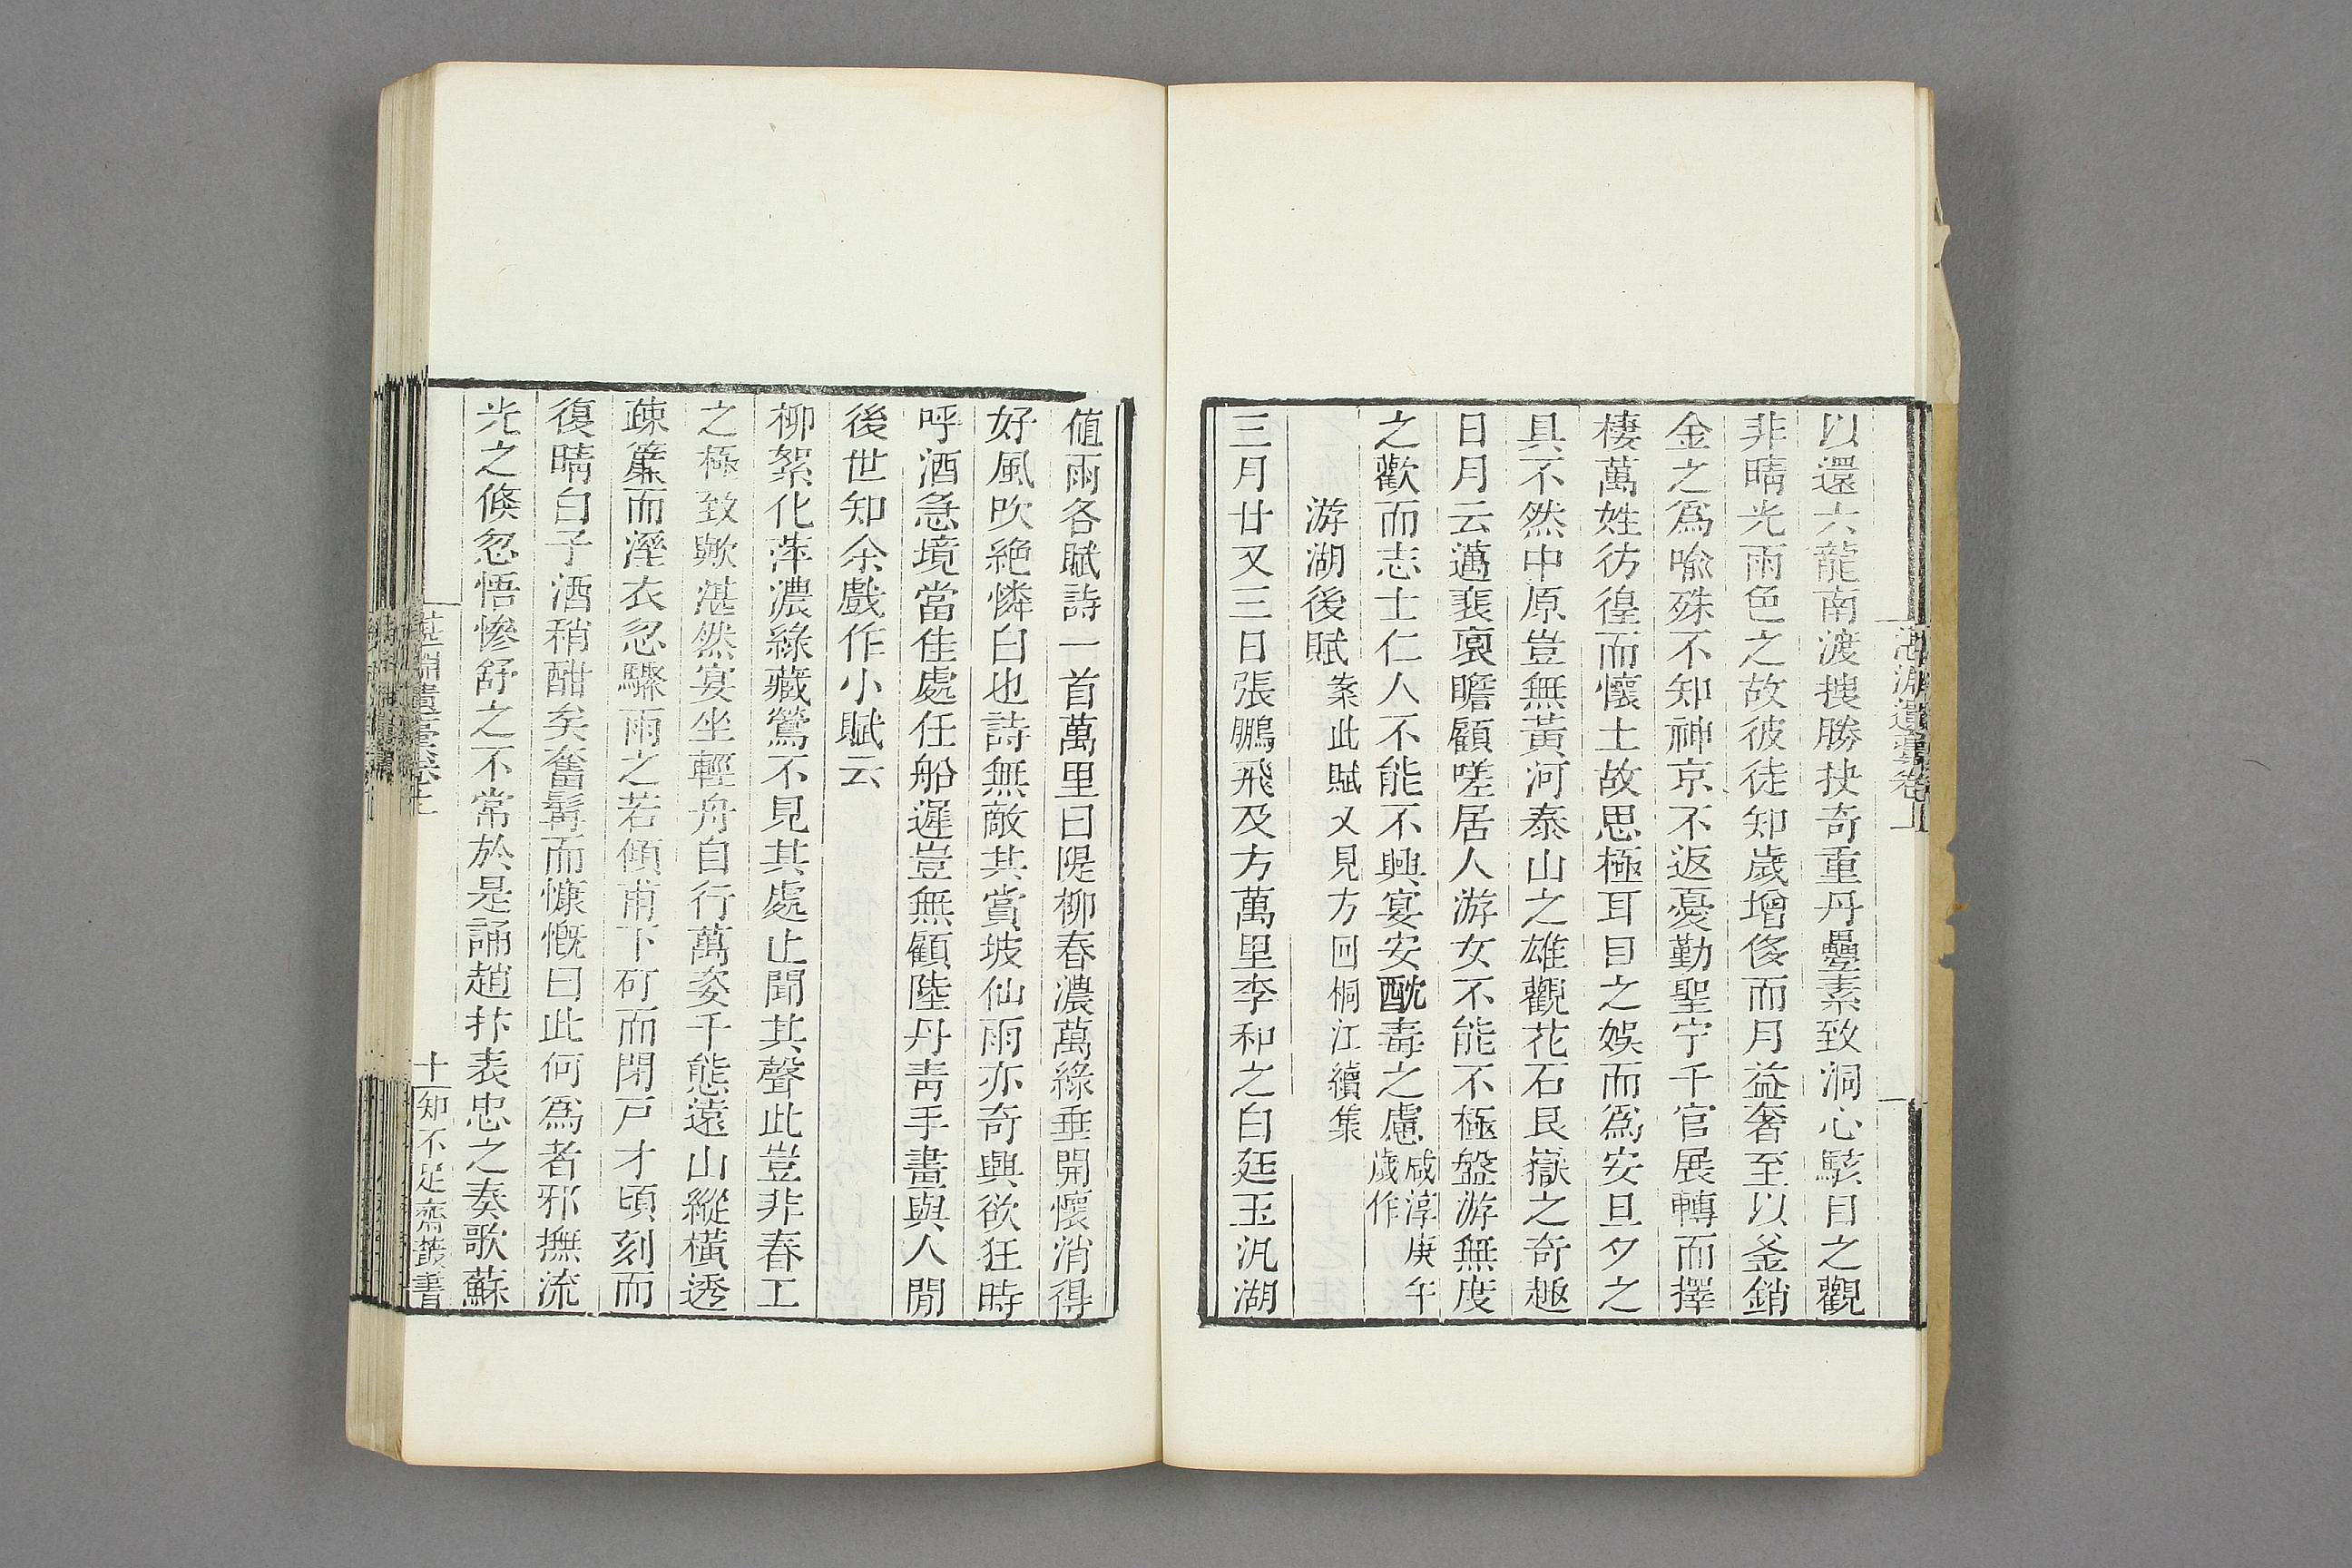 湛淵遺稾卷上
以還六龍南渡搜勝抉奇重丹疊素致洞心駭目之觀
非晴光雨色之故彼徒知歲增侈而月益奢至以釜銷
金之爲喻殊不知神京不返憂勤聖宁千官展轉而擇
棲萬姓彷徨而懷土故思極耳目之娛而爲安旦夕之
具不然中原豈無黃河泰山之雄觀花石艮嶽之奇趣
日月云邁裴褱瞻顧嗟居人游女不能不極盤游無度
之歡而志士仁人不能不興宴安酖毒之慮咸淳庚午歲作
游湖後賦案此賦又見方回桐江續集
三月廿又三日張鵬飛及方萬里李和之白廷玉汎湖
值雨各賦詩一首萬里曰隄柳春濃萬綠垂開懷消得
好風吹絶憐白也詩無敵其賞坡仙雨亦奇興欲狂時
呼酒急境當佳處任船遲豈無顧陸丹靑手畫與人閒
後世知余戲作小賦云
柳絮化萍濃綠藏鶯不見其處止聞其聲此豈非春工
之極致歟湛然宴坐輕舟自行萬姿千態遠山縱橫透
疎簾而溼衣忽驟雨之若傾甫下矴而閉戸才頃刻而
復晴白子酒稍酣矣奮髯而慷慨曰此何爲者邪撫流
光之倏忽悟慘舒之不常於是誦趙抃表忠之奏歌蘇
湛淵遺稾卷上
十一
知不足齋叢書